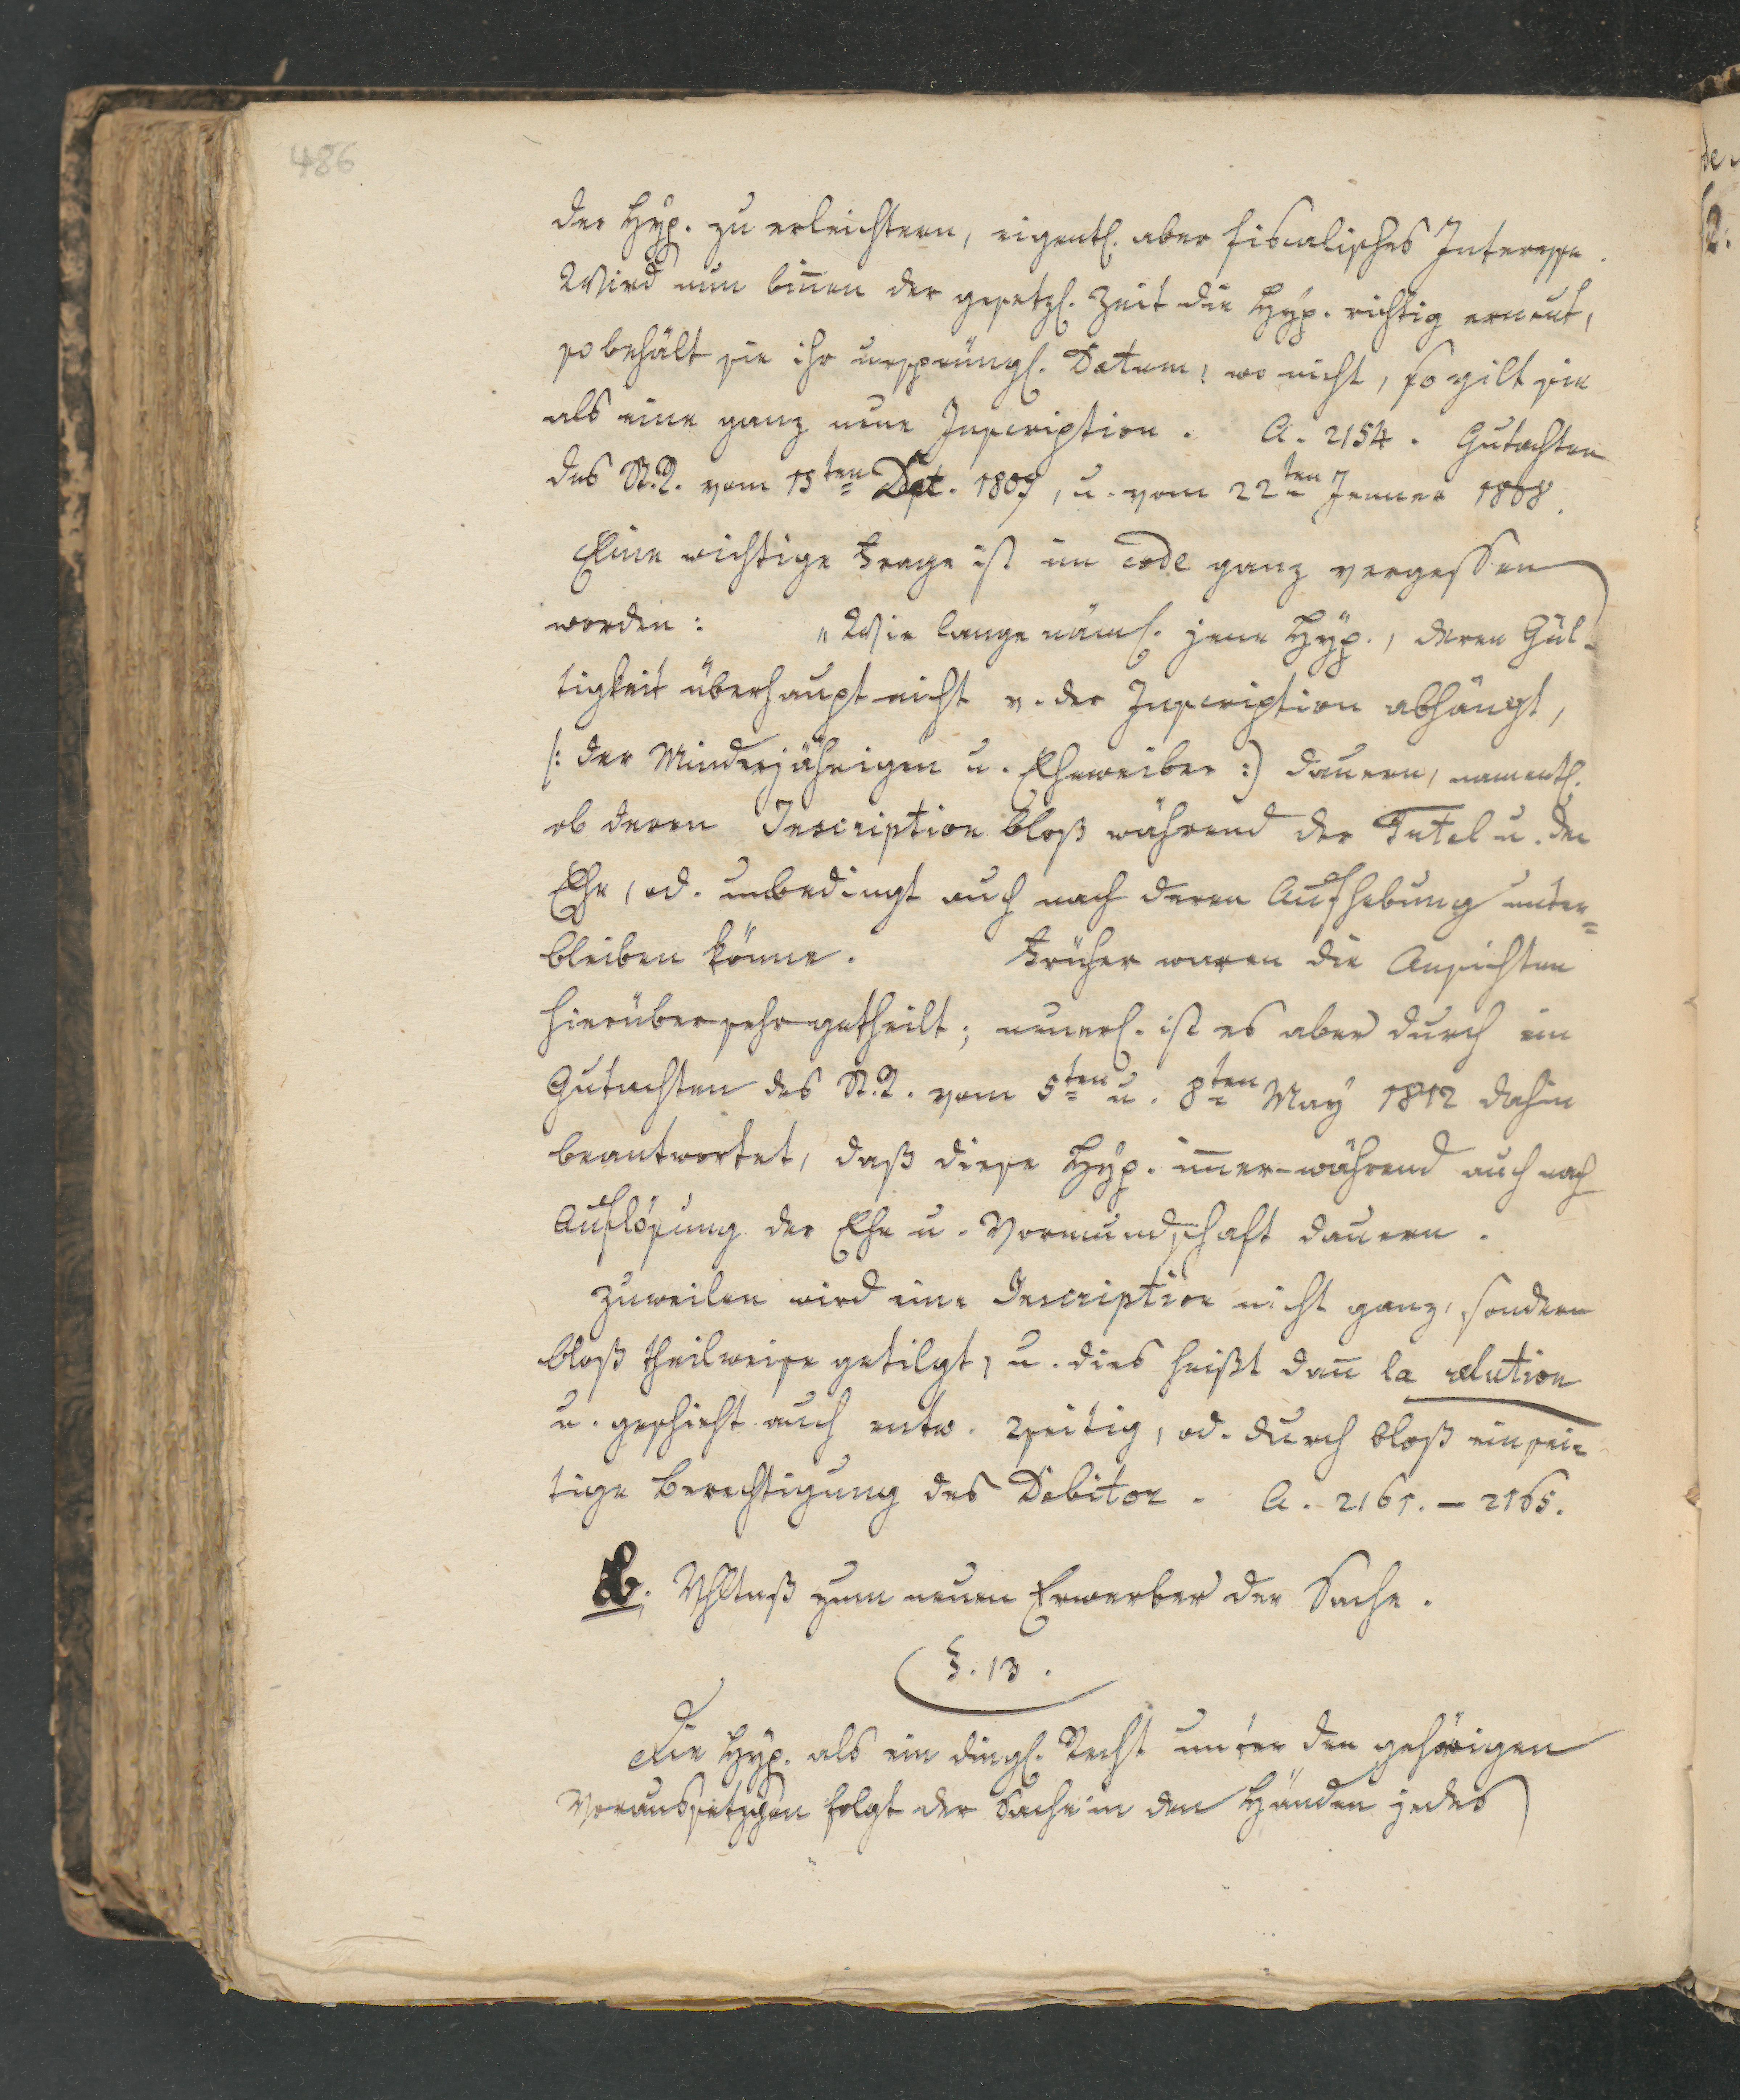 486
der Hyp. zu erleichtern, eigentl. aber fiscalisches Interesse.
Wird nun binnen der gesetzl. Zeit die Hyp. richtig erneut,
so behält sie ihr ursprüngl. Datum, wo nicht, so gilt sie
als eine ganz neue Inscription. A. 2154. Gutachten
des St.R. vom 15ten Dpt. 1807, u. vom 22ten Jenner 1808.
Eine wichtige Frage ist im Code ganz vergessen
worden: „Wie lange näml. jene Hyp., deren Gül-
tigkeit überhaupt nicht v. der Inscription abhängt,
/: der Minderjährigen u. Eheweiber :) dauern, namentl.
ob deren Inscription bloß während der Tutel u. der
Ehe, od. unbedingt auch nach deren Aufhebung unter=
bleiben könne. Früher waren die Ansichten
hierüber sehr getheilt; neuerl. ist es aber durch ein
Gutachten des St.R. vom 5ten u. 8ten May 1812 dahin
beantwortet, daß diese Hyp. immer-während auch nach
Auflösung der Ehe u. Vormundschaft dauern.
Zuweilen wird eine Inscription nicht ganz, sondern
bloß theilweise getilgt, u. dies heißt dann la
u. geschieht auch entw. 2seitig, od. durch bloß einsei-
tige Berechtigung des Debitor. A. 2161. – 2165.
b; Vhltnß zum neuen Erwerber der Sache.
§. 13.
Die Hyp. als ein dingl. Recht unter den gehörigen
Voraussetzgen folgt der Sache in den Händen jedes